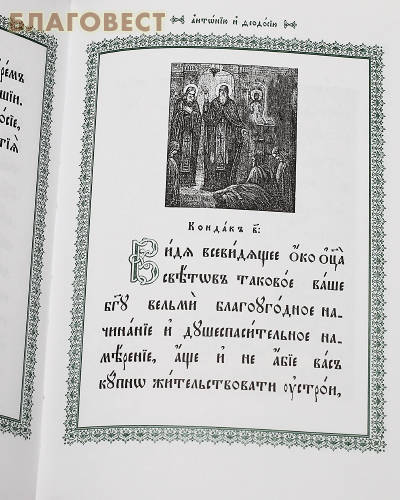 БЛАГОВЕСТ
а҆нтѡ́нїю и҆ ѳеодо́сїю
Конда́къ в҃:
Ви́дѧ всеви́дѧщее ѻ҆́ко ѻ҆ц҃а̀
свѣ́тѡвъ таково́е ва́ше
бг҃ꙋ вельмѝ благоꙋго́дное на-
чина́нїе и҆ дꙋшеспаси́тельное на-
мѣ́ренїе, а҆́ще и҆ не а҆́бїе ва́съ
кꙋ́пнѡ жи́тельствовати ᲂу҆стро́и,